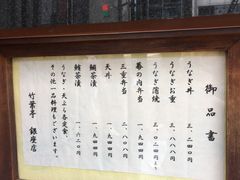 御品書
うなぎ丼 三、二四〇円
うなぎお重 三、八八八円
うなぎ蒲焼 三、〇二四円より
昼の内弁当
三重弁当 二、八〇八円
天丼 一、九四四円
鯛茶漬 一、九四四円
鮪茶漬 一、六二〇円
うなぎ・天ぷら各定食、
その他一品料理もございます。
竹葉亭 銀座店